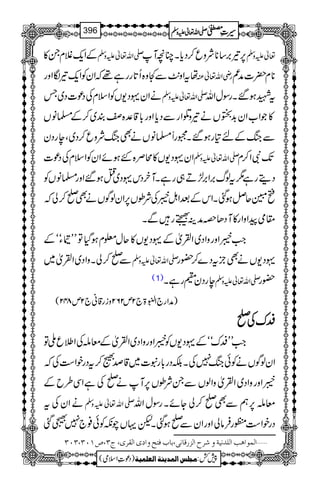 سیرتِ مصطفیٰ صلی اللہ تعالیٰ علیہ وسلم
396
تعالیٰ علیہ وسلم پر تیر برسانا شروع کر دیا۔ چنانچہ آپ صلی اللہ تعالیٰ علیہ وسلم کے ایک غلام جن کا
نام حضرت مدعم رضی اللہ تعالیٰ عنہ تھا یہ اونٹ سے کجاوہ اتار رہے تھے کہ ان کو ایک تیر لگا اور
یہ شہید ہو گئے۔ رسول اللہ صلی اللہ تعالیٰ علیہ وسلم نے ان یہودیوں کو اسلام کی دعوت دی جس
کا جواب ان بدبختوں نے تیر و تلوار سے دیا اور باقاعدہ صف بندی کر کے مسلمانوں
سے جنگ کے لئے تیار ہو گئے۔ مجبوراً مسلمانوں نے بھی جنگ شروع کر دی، چار دن
تک نبی اکرم صلی اللہ تعالیٰ علیہ وسلم ان یہودیوں کا محاصرہ کئے ہوئے ان کو اسلام کی دعوت
دیتے رہے مگر یہ لوگ برابر لڑتے ہی رہے۔ آخر دس یہودی قتل ہو گئے اور مسلمانوں کو
فتح مبین حاصل ہو گئی۔ اس کے بعد اہل خیبر کی شرطوں پر ان لوگوں نے بھی صلح کر لی کہ
مقامی پیداوار کا آدھا حصہ مدینہ بھیجتے رہیں گے۔
جب خیبر اور وادی القریٰ کے یہودیوں کا حال معلوم ہو گیا تو ”تیماء“ کے
یہودیوں نے بھی جزیہ دے کر حضور صلی اللہ تعالیٰ علیہ وسلم سے صلح کر لی۔ وادی القریٰ میں
حضور صلی اللہ تعالیٰ علیہ وسلم چار دن مقیم رہے۔ (1)
(مدارج النبوۃ ج۲ ص۲۶۲ و زرقانی ج۲ ص۲۴۸)
فدک کی صلح
جب ”فدک“ کے یہودیوں کو خیبر اور وادی القریٰ کے معاملہ کی اطلاع ملی تو
ان لوگوں نے کوئی جنگ نہیں کی۔ بلکہ دربار نبوت میں قاصد بھیج کر یہ درخواست کی کہ
خیبر اور وادی القریٰ والوں سے جن شرطوں پر آپ نے صلح کی ہے اسی طرح کے
معاملہ پر ہم سے بھی صلح کر لی جائے۔ رسول اللہ صلی اللہ تعالیٰ علیہ وسلم نے ان کی یہ
درخواست منظور فرما لی اور ان سے صلح ہو گئی۔ لیکن یہاں چونکہ کوئی فوج نہیں بھیجی گئی
......المواهب اللدنية و شرح الزرقانی،باب فتح وادی القری، ج۳،ص۳۰۱،۳۰۳
پیش کش: مجلس المدینۃ العلمیۃ (دعوتِ اسلامی)